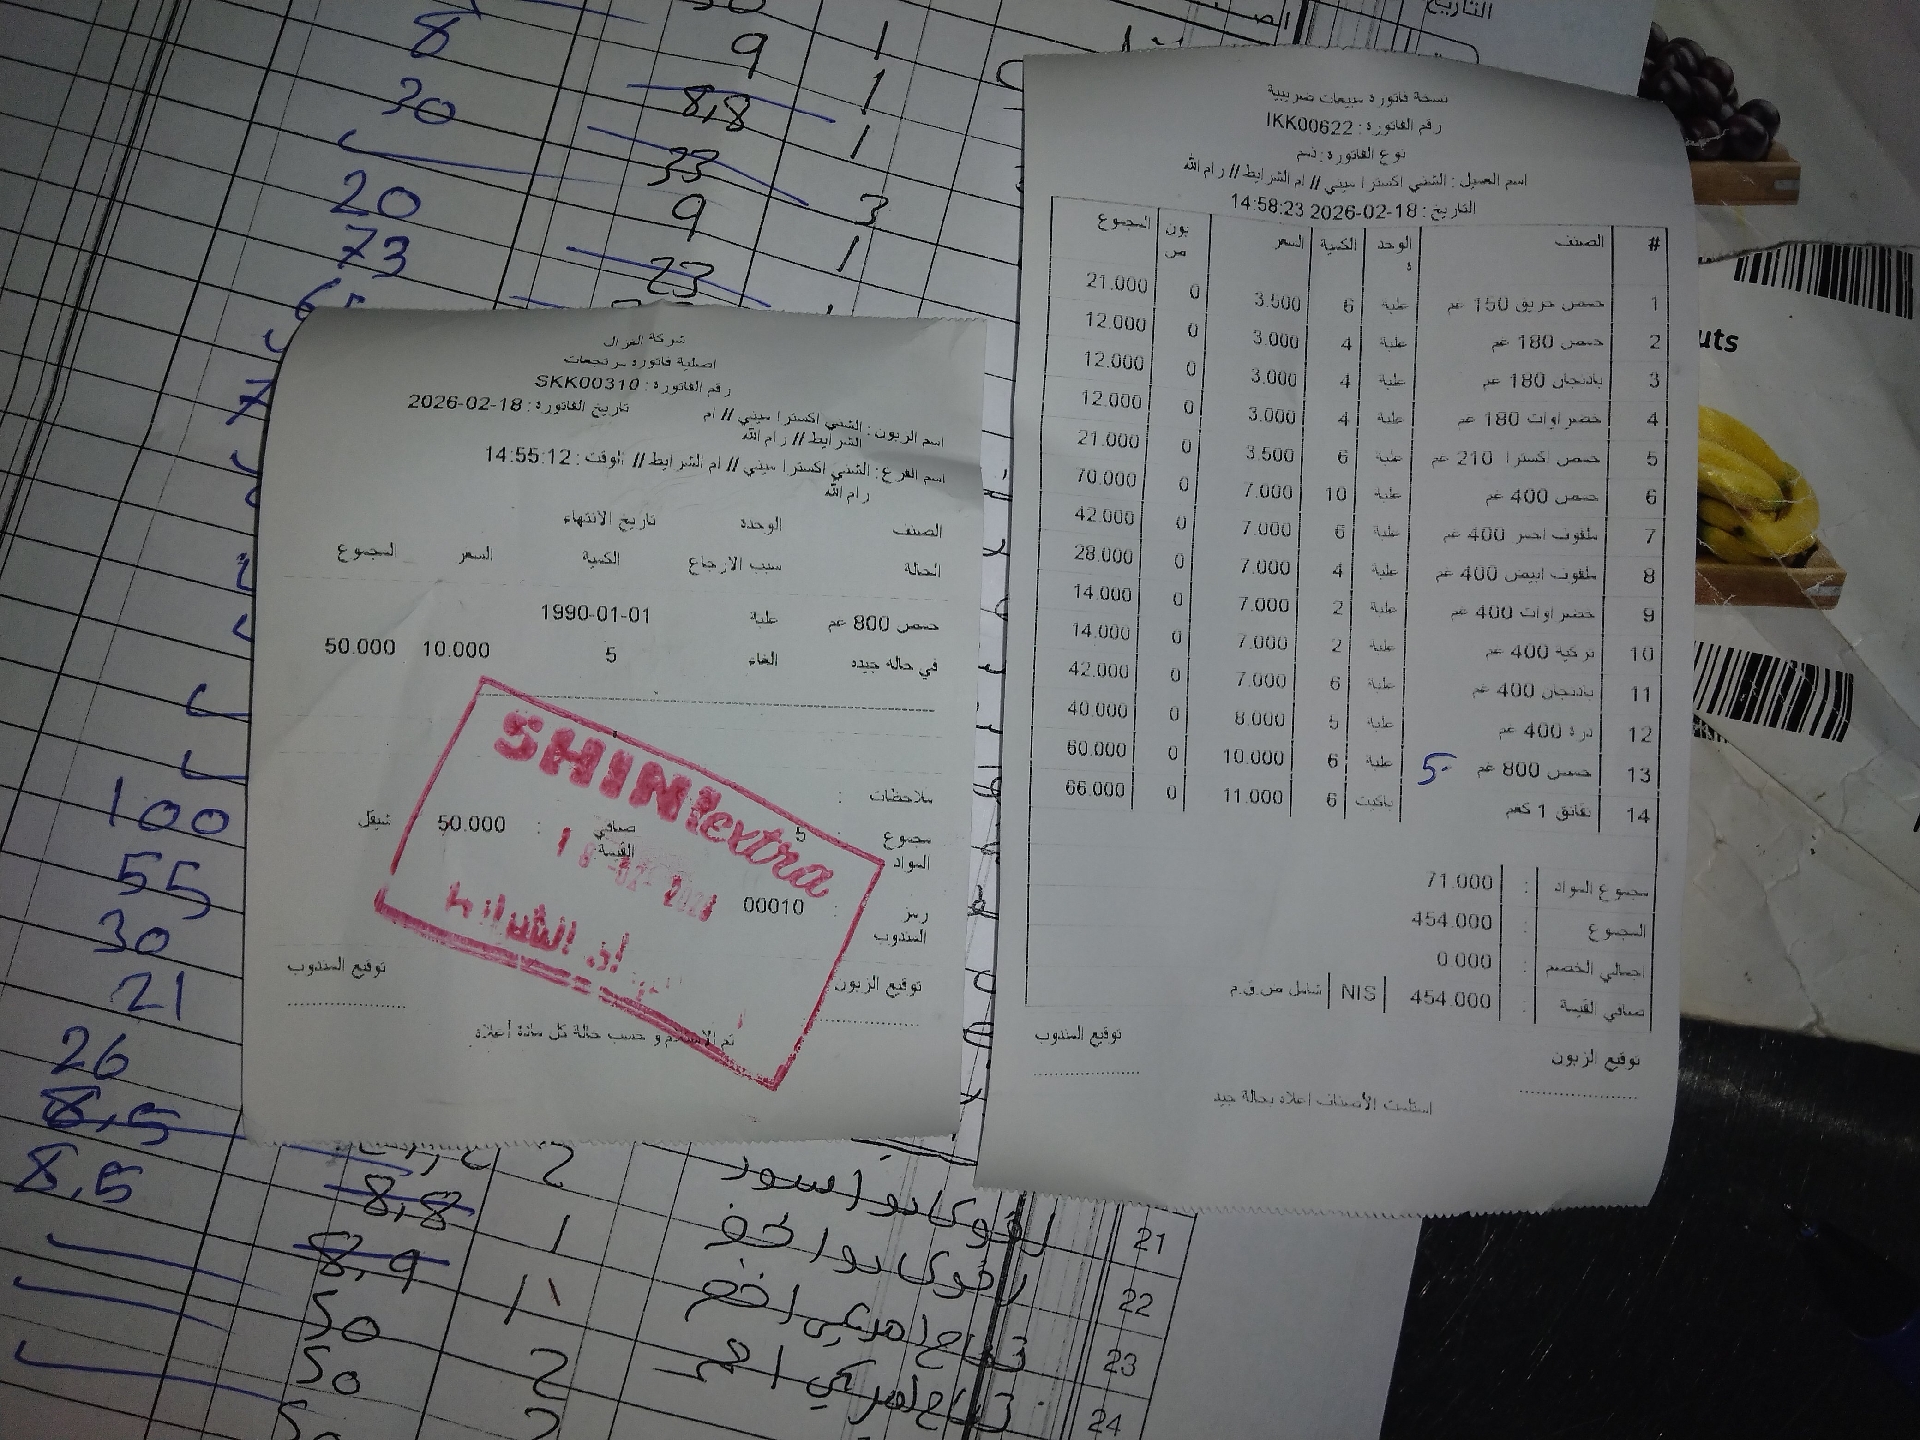 نسخة فاتورة مبيعات ضريبية
رقم الفاتورة : IKK00622
نوع الفاتورة : ذمم
اسم العميل : الشني اكسترا سيني // ام الشرايط // رام الله
التاريخ : 2026-02-18 14:58:23
# الصنف الوحدة الكمية السعر بونص المجموع
1 حمص حريق 150 غم علبة 6 3.500 0 21.000
2 حمص 180 غم علبة 4 3.000 0 12.000
3 باذنجان 180 غم علبة 4 3.000 0 12.000
4 خضراوات 180 غم علبة 4 3.000 0 12.000
5 حمص اكسترا 210 غم علبة 6 3.500 0 21.000
6 حمص 400 غم علبة 10 7.000 0 70.000
7 ملفوف احمر 400 غم علبة 6 7.000 0 42.000
8 ملفوف ابيض 400 غم علبة 4 7.000 0 28.000
9 خضراوات 400 غم علبة 2 7.000 0 14.000
10 تركية 400 غم علبة 2 7.000 0 14.000
11 باذنجان 400 غم علبة 6 7.000 0 42.000
12 ذرة 400 غم علبة 5 8.000 0 40.000
13 حمص 800 غم 5 علبة 6 10.000 0 60.000
14 نقانق 1 كغم باكيت 6 11.000 0 66.000
مجموع المواد : 71.000
المجموع : 454.000
اجمالي الخصم : 0.000
صافي القيمة : 454.000 NIS شامل ض.ق.م
توقيع الزبون توقيع المندوب
استلمت الأصناف اعلاه بحالة جيد
اصلية فاتورة مرتجعات
رقم الفاتورة : SKK00310
تاريخ الفاتورة : 2026-02-18
اسم الزبون : الشني اكسترا سيني // ام
الشرايط // رام الله
اسم الفرع : الشني اكسترا سيني // ام الشرايط // الوقت : 14:55:12
رام الله
الصنف الوحدة تاريخ الانتهاء
الحالة سبب الارجاع الكمية السعر المجموع
حمص 800 غم علبة 1990-01-01
في حاله جيده الغاء 5 10.000 50.000
ملاحظات :
مجموع المواد 5 صافي القيمة : 50.000 شيقل
رمز المندوب : 00010
توقيع الزبون توقيع المندوب
تم الاستلام و حسب حالة كل مادة أعلاه
SHINI extra
ام الشرايط
8
9
1
30
8,8
1
33
1
20
9
3
73
23
1
100
55
30
21
26
8,5
8,5
2
8,8
1
8,9
50
2
50
2
21
22
23
24
التاريخ
uts